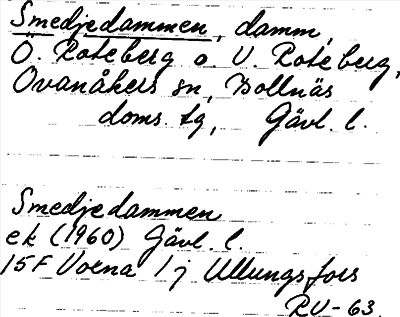 Smedjedammen, damm,
Ö. Roteberg o. V. Roteberg,
Ovanåkers sn, Bollnäs
doms. tg, Gävl. l.
Smedjedammen
ek (1960) Gävl. l.
15F Voxna 1 j Ullungsfors
RV-63.